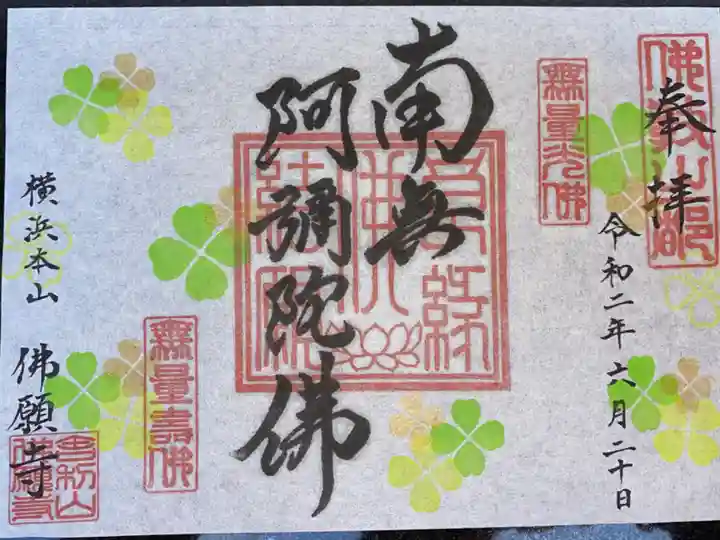 奉拝
無量光佛
令和二年六月二十日
南無
阿彌陀佛
無量壽佛
横浜本山 佛願寺
舎利山
佛願寺